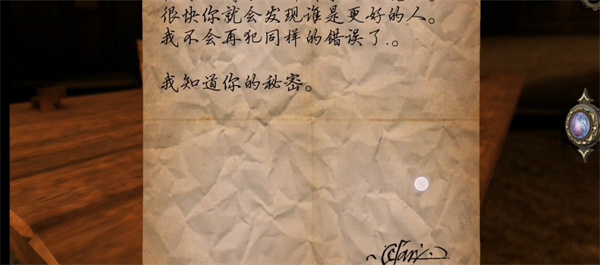 很快你就会发现谁是更好的人。
我不会再犯同样的错误了.。
我知道你的秘密。